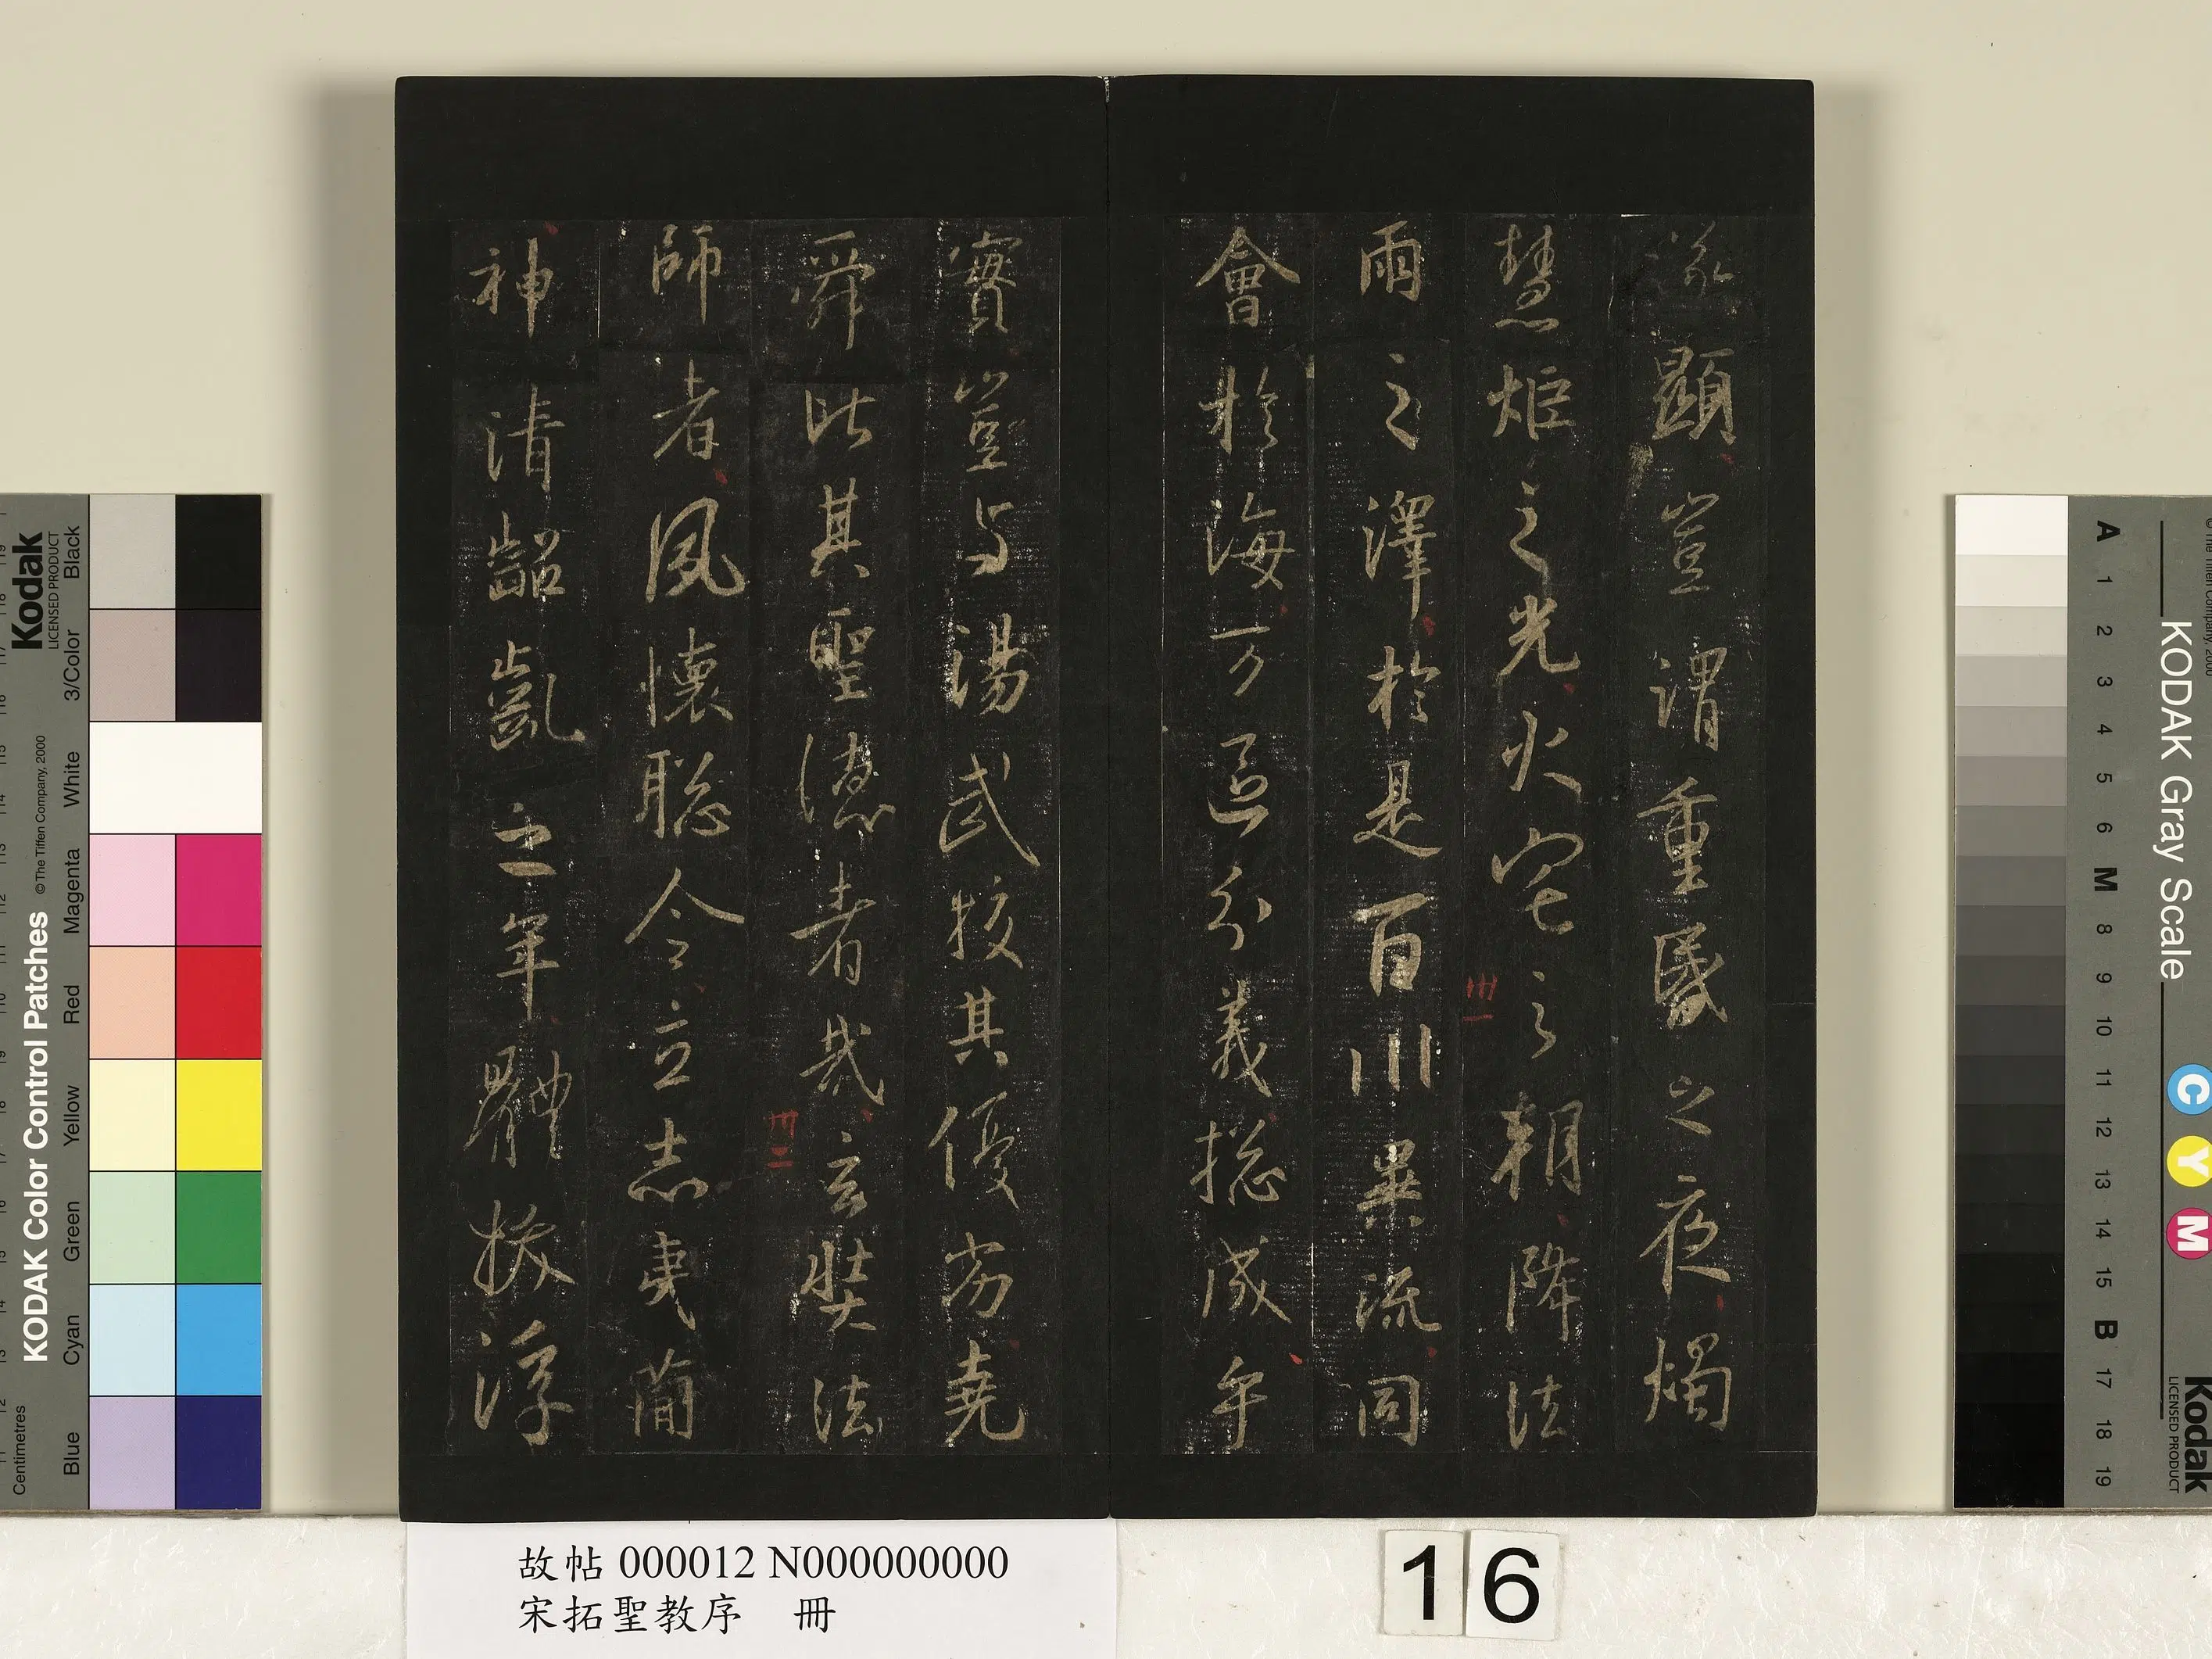 遂顯豈謂重昏之夜燭
慧炬之光火宅之朝降法
卅一
雨之澤於是百川異流同
會於海万區分義揔成乎
實豈与湯武校其優劣堯
舜比其聖德者哉玄奘法
卅二
師者夙懷聡令立志夷簡
神清齠齔之年體拔浮
故帖 000012 N000000000
宋拓聖教序 冊
16
KODAK Color Control Patches
©The Tiffen Company, 2000
Kodak
LICENSED PRODUCT
Centimetres
Blue
Cyan
Green
Yellow
Red
Magenta
White
3/Color
Black
KODAK Gray Scale
C Y M
Kodak
LICENSED PRODUCT
A 1 2 3 4 5 6 M 8 9 10 11 12 13 14 15 B 17 18 19